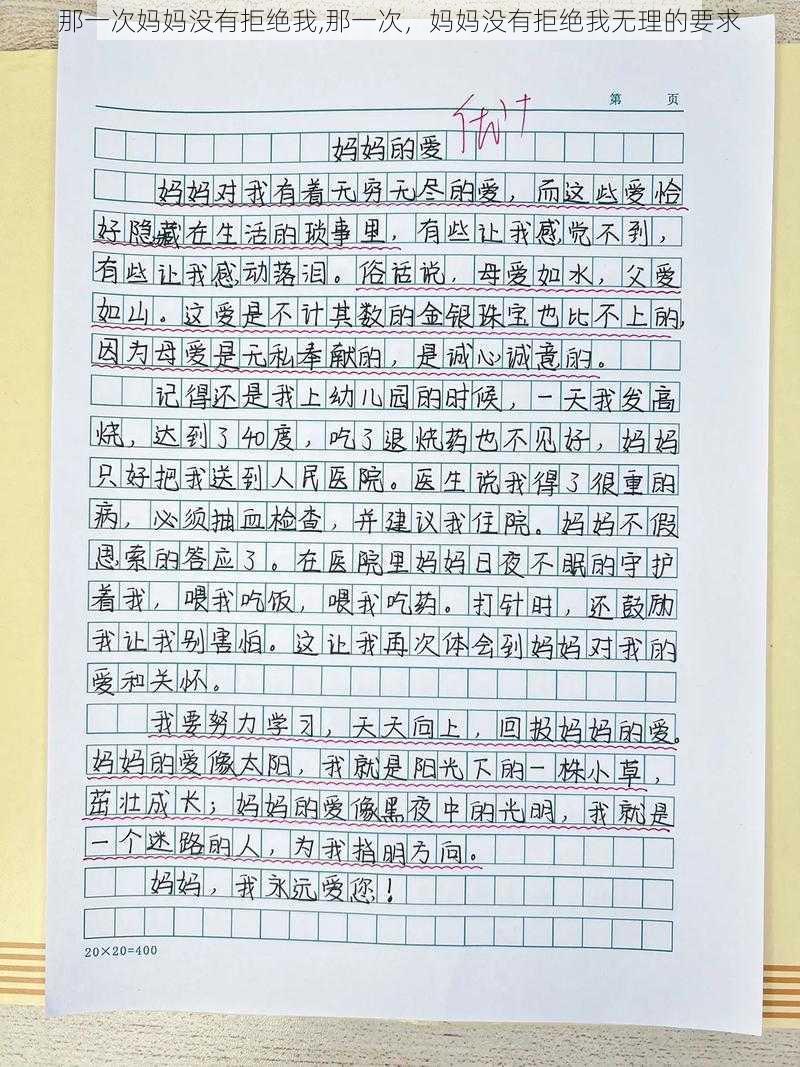 那一次妈妈没有拒绝我,那一次，妈妈没有拒绝我无理的要求
第 页
优+
妈妈的爱
妈妈对我有着无穷无尽的爱，而这些爱恰
好隐藏在生活的琐事里，有些让我感觉不到，
有些让我感动落泪。俗话说，母爱如水，父爱
如山。这爱是不计其数的金银珠宝也比不上的，
因为母爱是无私奉献的，是诚心诚意的。
记得还是我上幼儿园的时候，一天我发高
烧，达到了40度，吃了退烧药也不见好，妈妈
只好把我送到人民医院。医生说我得了很重的
病，必须抽血检查，并建议我住院。妈妈不假
思索的答应了。在医院里妈妈日夜不眠的守护
着我，喂我吃饭，喂我吃药。打针时，还鼓励
我让我别害怕。这让我再次体会到妈妈对我的
爱和关怀。
我要努力学习，天天向上，回报妈妈的爱。
妈妈的爱像太阳，我就是阳光下的一株小草，
茁壮成长；妈妈的爱像黑夜中的光明，我就是
一个迷路的人，为我指明方向。
妈妈，我永远爱您！
20×20=400